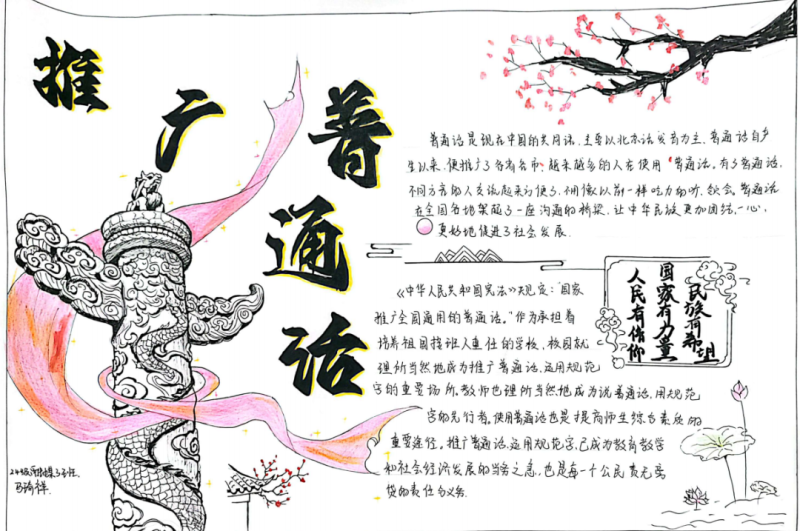 推广普通话
普通话是现在中国的共同话,主要以北京话发音为主,普通话自产
生以来,便推广了各省各市,越来越多的人在使用普通话。有了普通话,
不同方言的人交谈起来方便了,不用像以前一样吃力的听、领会。普通话
在全国各地架起了一座沟通的桥梁,让中华民族更加团结一心,
更好地促进了社会发展.
《中华人民共和国宪法》规定:“国家
推广全国通用的普通话。”作为承担着
培养祖国接班人重任的学校,校园就
理所当然地成为推广普通话,运用规范
字的重要场所。教师也理所当然地成为说普通话,用规范
字的先行者。使用普通话也是提高师生综合素质的
重要途径。推广普通话,运用规范字,已成为教育教学
和社会经济发展的当务之急,也是每一个公民责无旁
贷的责任与义务.
民族有希望
国家有力量
人民有信仰